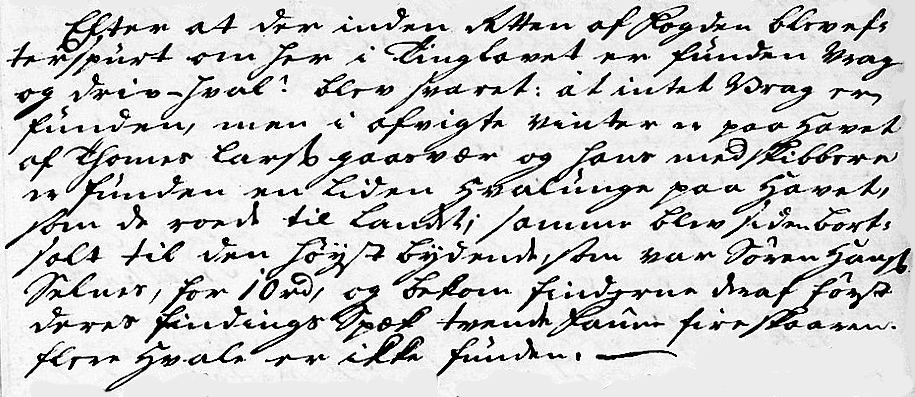 Efter at der inden Retten af Fogden blev ef-
terspurt om her i Tinglavet er funden Vrag
og driv-hval? blev svaret: at intet Vrag er
funden, men i afvigte vinter er paa Havet
af Thomes Larss gaasvær og hans medskibbere
er funden en liden Hvalunge paa Havet,
som de roede til Landet; samme blev siden bort-
solt til den høystbydende, som var Sören Hanss.
Selnes, for 10 rd, og bekom finderne deraf först
deres findings Spæk tvende faune fireskaaren.
flere Hvale er ikke funden. —